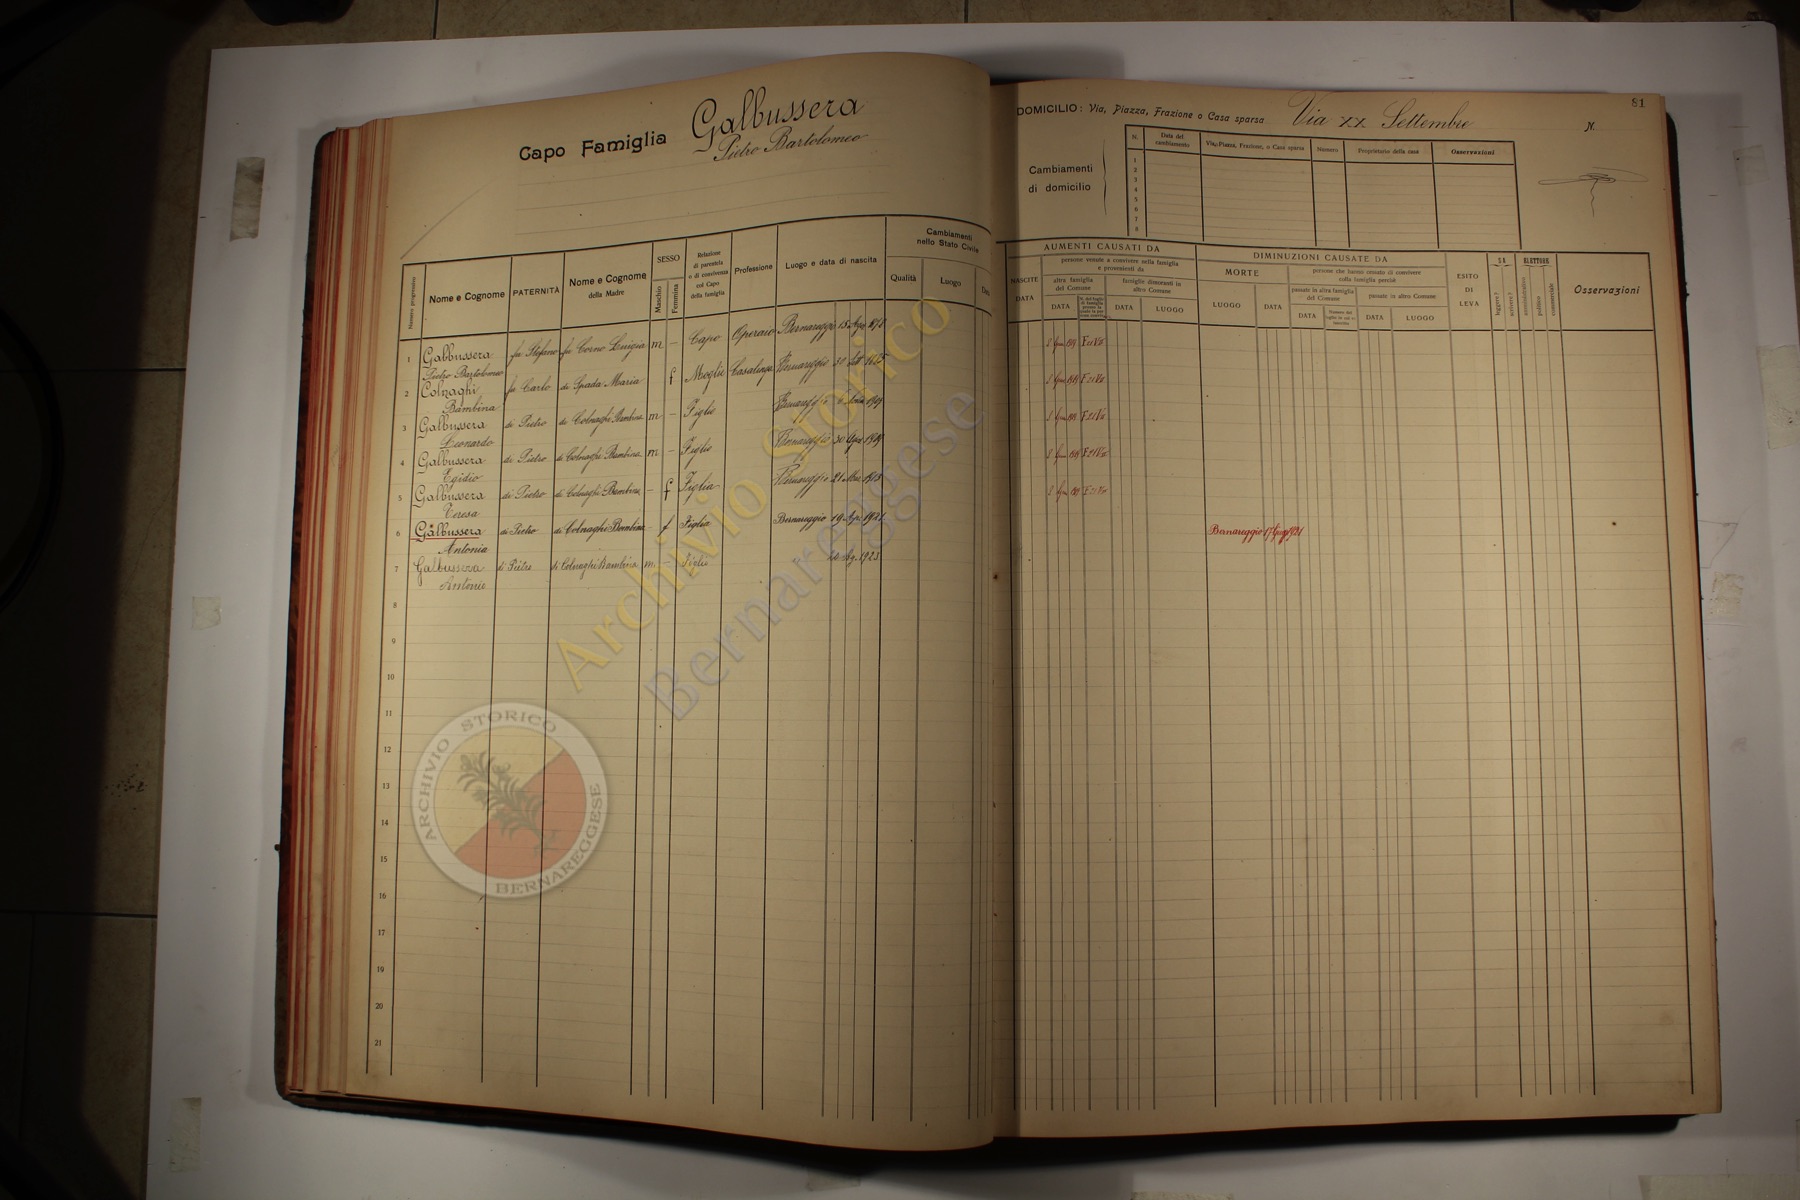 Capo Famiglia Galbussera
Pietro Bartolomeo
Numero progressivo
Nome e Cognome
PATERNITÀ
Nome e Cognome
della Madre
SESSO
Maschio
Femmina
Relazione
di parentela
o di convivenza
col Capo
della famiglia
Professione
Luogo e data di nascita
Cambiamenti
nello Stato Civile
Qualità
Luogo
1 Galbussera fu Stefano fu Corno Luigia m - Capo Operaio Bernareggio 13
Pietro Bartolomeo
2 Colnaghi fu Carlo di Spada Maria f Moglie Casalinga Bernareggio 30
Bambina
3 Galbussera di Pietro di Colnaghi Bambina m - Figlio Bernareggio
Leonardo
4 Galbussera di Pietro di Colnaghi Bambina m - Figlio Bernareggio 30
Egidio
5 Galbussera di Pietro di Colnaghi Bambina - f Figlia Bernareggio 21
Teresa
6 Galbussera di Pietro di Colnaghi Bambina - f Figlia Bernareggio 19 Apr. 1921
Antonia
7 Galbussera di Pietro di Colnaghi Bambina m. - Figlio 1923
Antonio
8
9
10
11
12
13
14
15
16
17
18
19
20
21
81
DOMICILIO: Via, Piazza, Frazione o Casa sparsa Via XX Settembre N.
Cambiamenti
di domicilio
N.
Data del
cambiamento
Via, Piazza, Frazione, o Casa sparsa
Numero
Proprietario della casa
Osservazioni
1
2
3
4
5
6
7
8
AUMENTI CAUSATI DA
NASCITE
DATA
persone venute a convivere nella famiglia
e provenienti da
altra famiglia
del Comune
DATA
famiglie dimoranti in
altro Comune
DATA
LUOGO
DIMINUZIONI CAUSATE DA
MORTE
LUOGO
DATA
persone che hanno cessato di convivere
colla famiglia perchè
passate in altra famiglia
del Comune
DATA
passate in altro Comune
DATA
LUOGO
ESITO
DI
LEVA
SA
leggere?
scrivere?
ELETTORE
amministrativo
politico
commerciale
Osservazioni
Bernareggio 17 1921
Archivio Storico
Bernareggese
ARCHIVIO STORICO
BERNAREGGESE